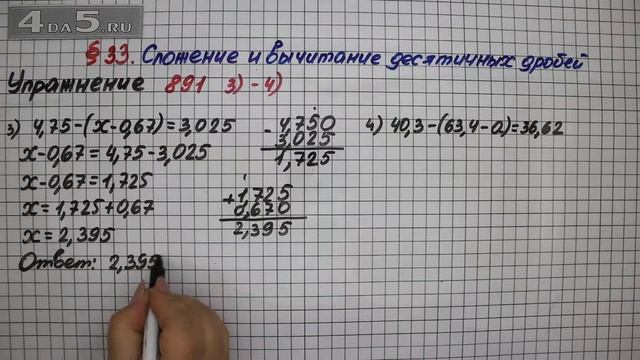 4DA5.RU
§ 33. Сложение и вычитание десятичных дробей
Упражнение 891 3) - 4)
3) 4,75-(x-0,67)=3,025
x-0,67=4,75-3,025
x-0,67=1,725
x=1,725+0,67
x=2,395
Ответ: 2,395
- 4,750
3,025
1,725
+ 1,725
0,670
2,395
4) 40,3-(63,4-a)=36,62